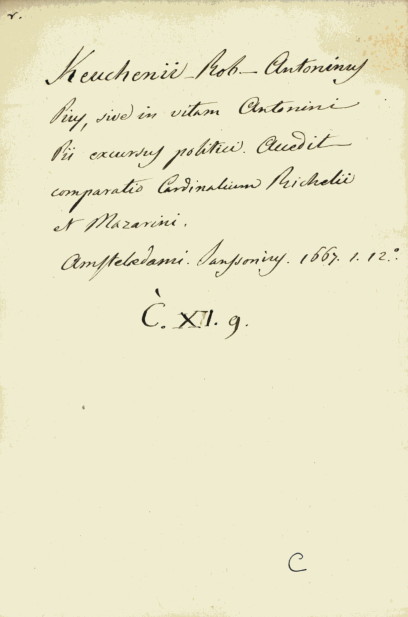 r.
Keuchenii Rob- Antoninus
Pius, sive in vitam Antonini
Pii excursus politici. Accedit
comparatio Cardinalium Richelii
et Mazarini.
Amstelodami. Janssonius. 1667. 1. 12.°
C. XII. 9.
C